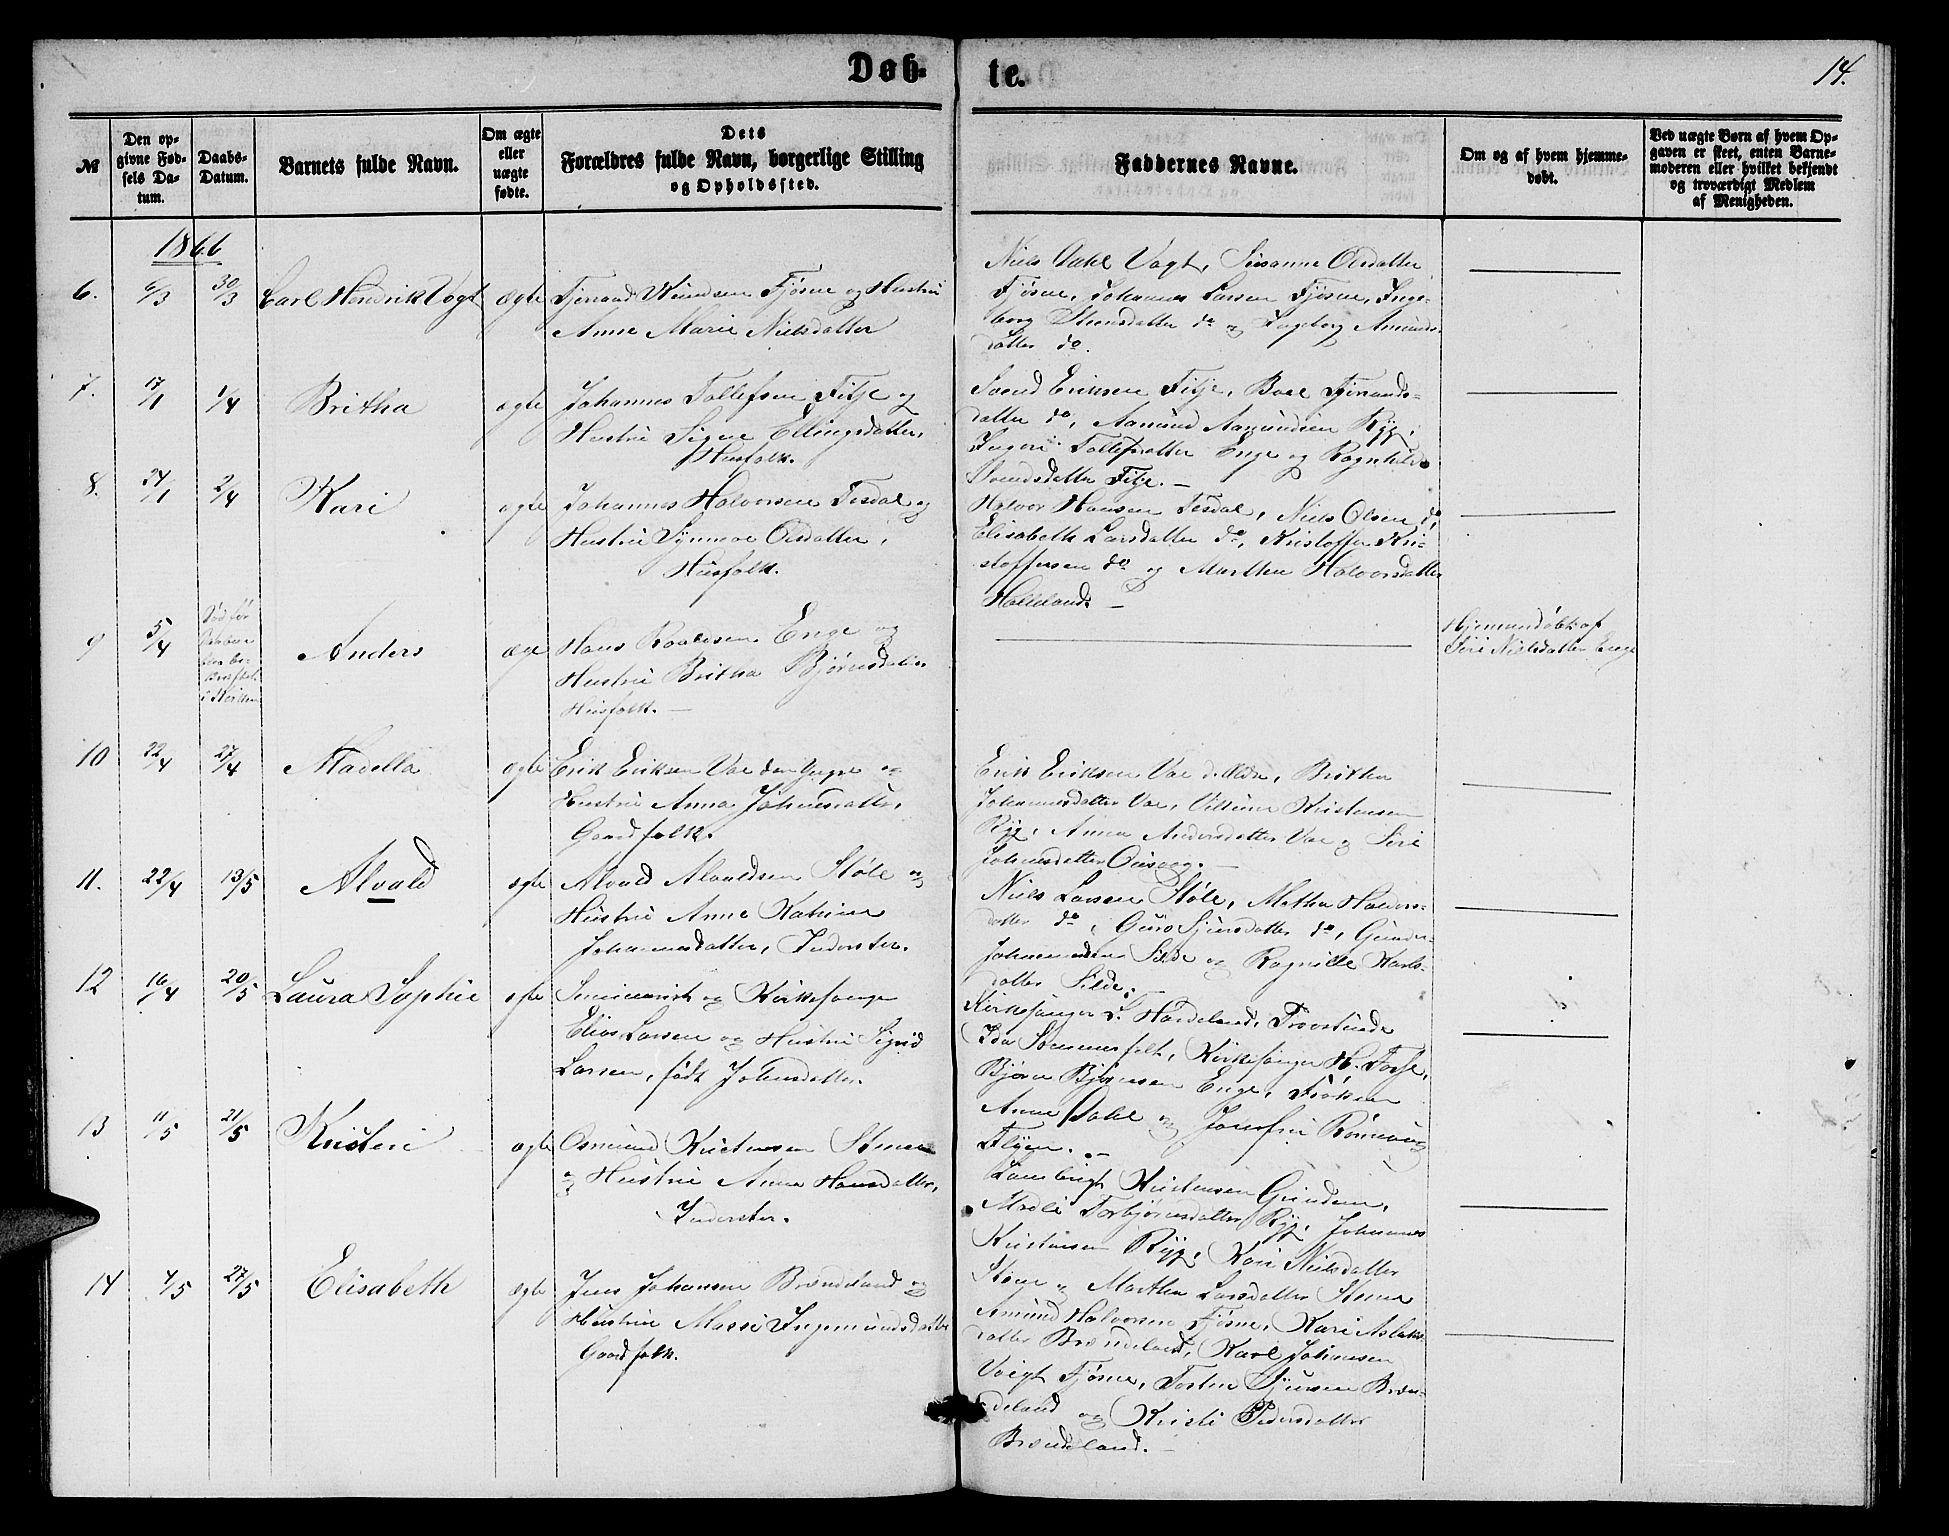 Døb-
te.
14.
№
Den op-
givne Fød-
sels Da-
tum.
Daabs-
Datum.
Barnets fulde Navn.
Om ægte
eller
uægte
fødte.
Dets
Forældres fulde Navn, borgerlige Stilling
og Opholdssted.
Faddernes Navne.
Om og af hvem hjemme-
døbt.
Ved uægte Børn af hvem Op-
gaven er skeet, enten Barne-
moderen eller hvilket bekjendt
og troværdigt Medlem
af Menigheden.
1866
6.
6/3
30/3
Carl Hendrik Vogt
ægte
Fjøsne og Hustru
Anne Marie Nielsdatter
Niels Dahl Vogt, Susanne Olsdatter
Fjøsne, Johannes Larsen Fjøsne, Inge-
borg Steensdatter do og Ingeborg Amunds-
datter do.
7.
17/1
1/4
Britha
ægte
Johannes Tollefsen Fitje og
Hustru Signe Ellingsdatter,
Husfolk.
Svend Eriksen Fitje, Boel Fjerands-
datter do, Aamund Aamundsen Ryg,
Ingeri Tollefsdatter Enge og Ragnhild
Svendsdatter Fitje. —
8.
24/1
2/4
Kari
ægte
Johannes Halvorsen Tesdal og
Hustru Synneve Olsdatter,
Husfolk.
Halvor Hansen Tesdal, Niels Olsen do,
Elisabeth Larsdatter do, Kristoffer Kri-
stoffersen do og Martha Halvorsdatter
Halleland. —
9
5/4
Død før
i Kirken
Anders
ægte
Hans Roaldsen Enge og
Hustru Britha Bjørnsdatter
Husfolk. —
Hjemmedøbt af
Siri Nielsdatter Enge
10
22/4
27/4
Madella
ægte
Erik Eriksen Vae den yngre og
Hustru Anna Johansdatter,
Gaardfolk.
Erik Eriksen Vae d. Ældre, Britha
Johannesdatter Vae, Villum Kristensen
Ryg, Anna Andersdatter Vae og Siri
Johansdatter
11.
22/4
13/5
Alvald
ægte
Alvald Alvaldsen Støle og
Hustru Anne Katrine
Johannesdatter, Inderster.
Niels Larsen Støle, Metha Halvors-
datter do, Guro Sjursdatter do, Gunder
Johannesen Silde og Ragnilde Karls-
datter Silde.
12
16/4
20/5
Laura Sophie
ægte
Seminarist og Kirkesanger
Elias Larsen og Hustru Sigrid
Larsen, født Johnsdatter.
Kirkesanger L. Hardeland, Provstinde
Ida Sømmerfelt, Kirkesanger H. Tosse,
Bjørn Bjørnsen Enge, Frøken
Anne Dahl og Josefine Rønnevig
13
11/5
21/5
Kristen
ægte
Osmund Kristensen Stene
og Hustru Anna Hansdatter,
Inderster.
Lambregt Kristensen Grinden,
Madli Torbjørnsdatter Ryg, Johannes
Kristensen Ryg, Kari Nielsdatter
Stene og Martha Larsdatter Stene
14
4/5
27/5
Elisabeth
ægte
Jens Johansen Brændeland og
Hustru Massi Ingemundsdatter
Gaardfolk.
Amund Halvorsen Fjøsne, Kari Aslaks-
datter Brændeland, Karl Johansen
Voigt Fjøsne, Torsten Sjursen Bræn-
deland og Kristi Pedersdatter
Brændeland. —